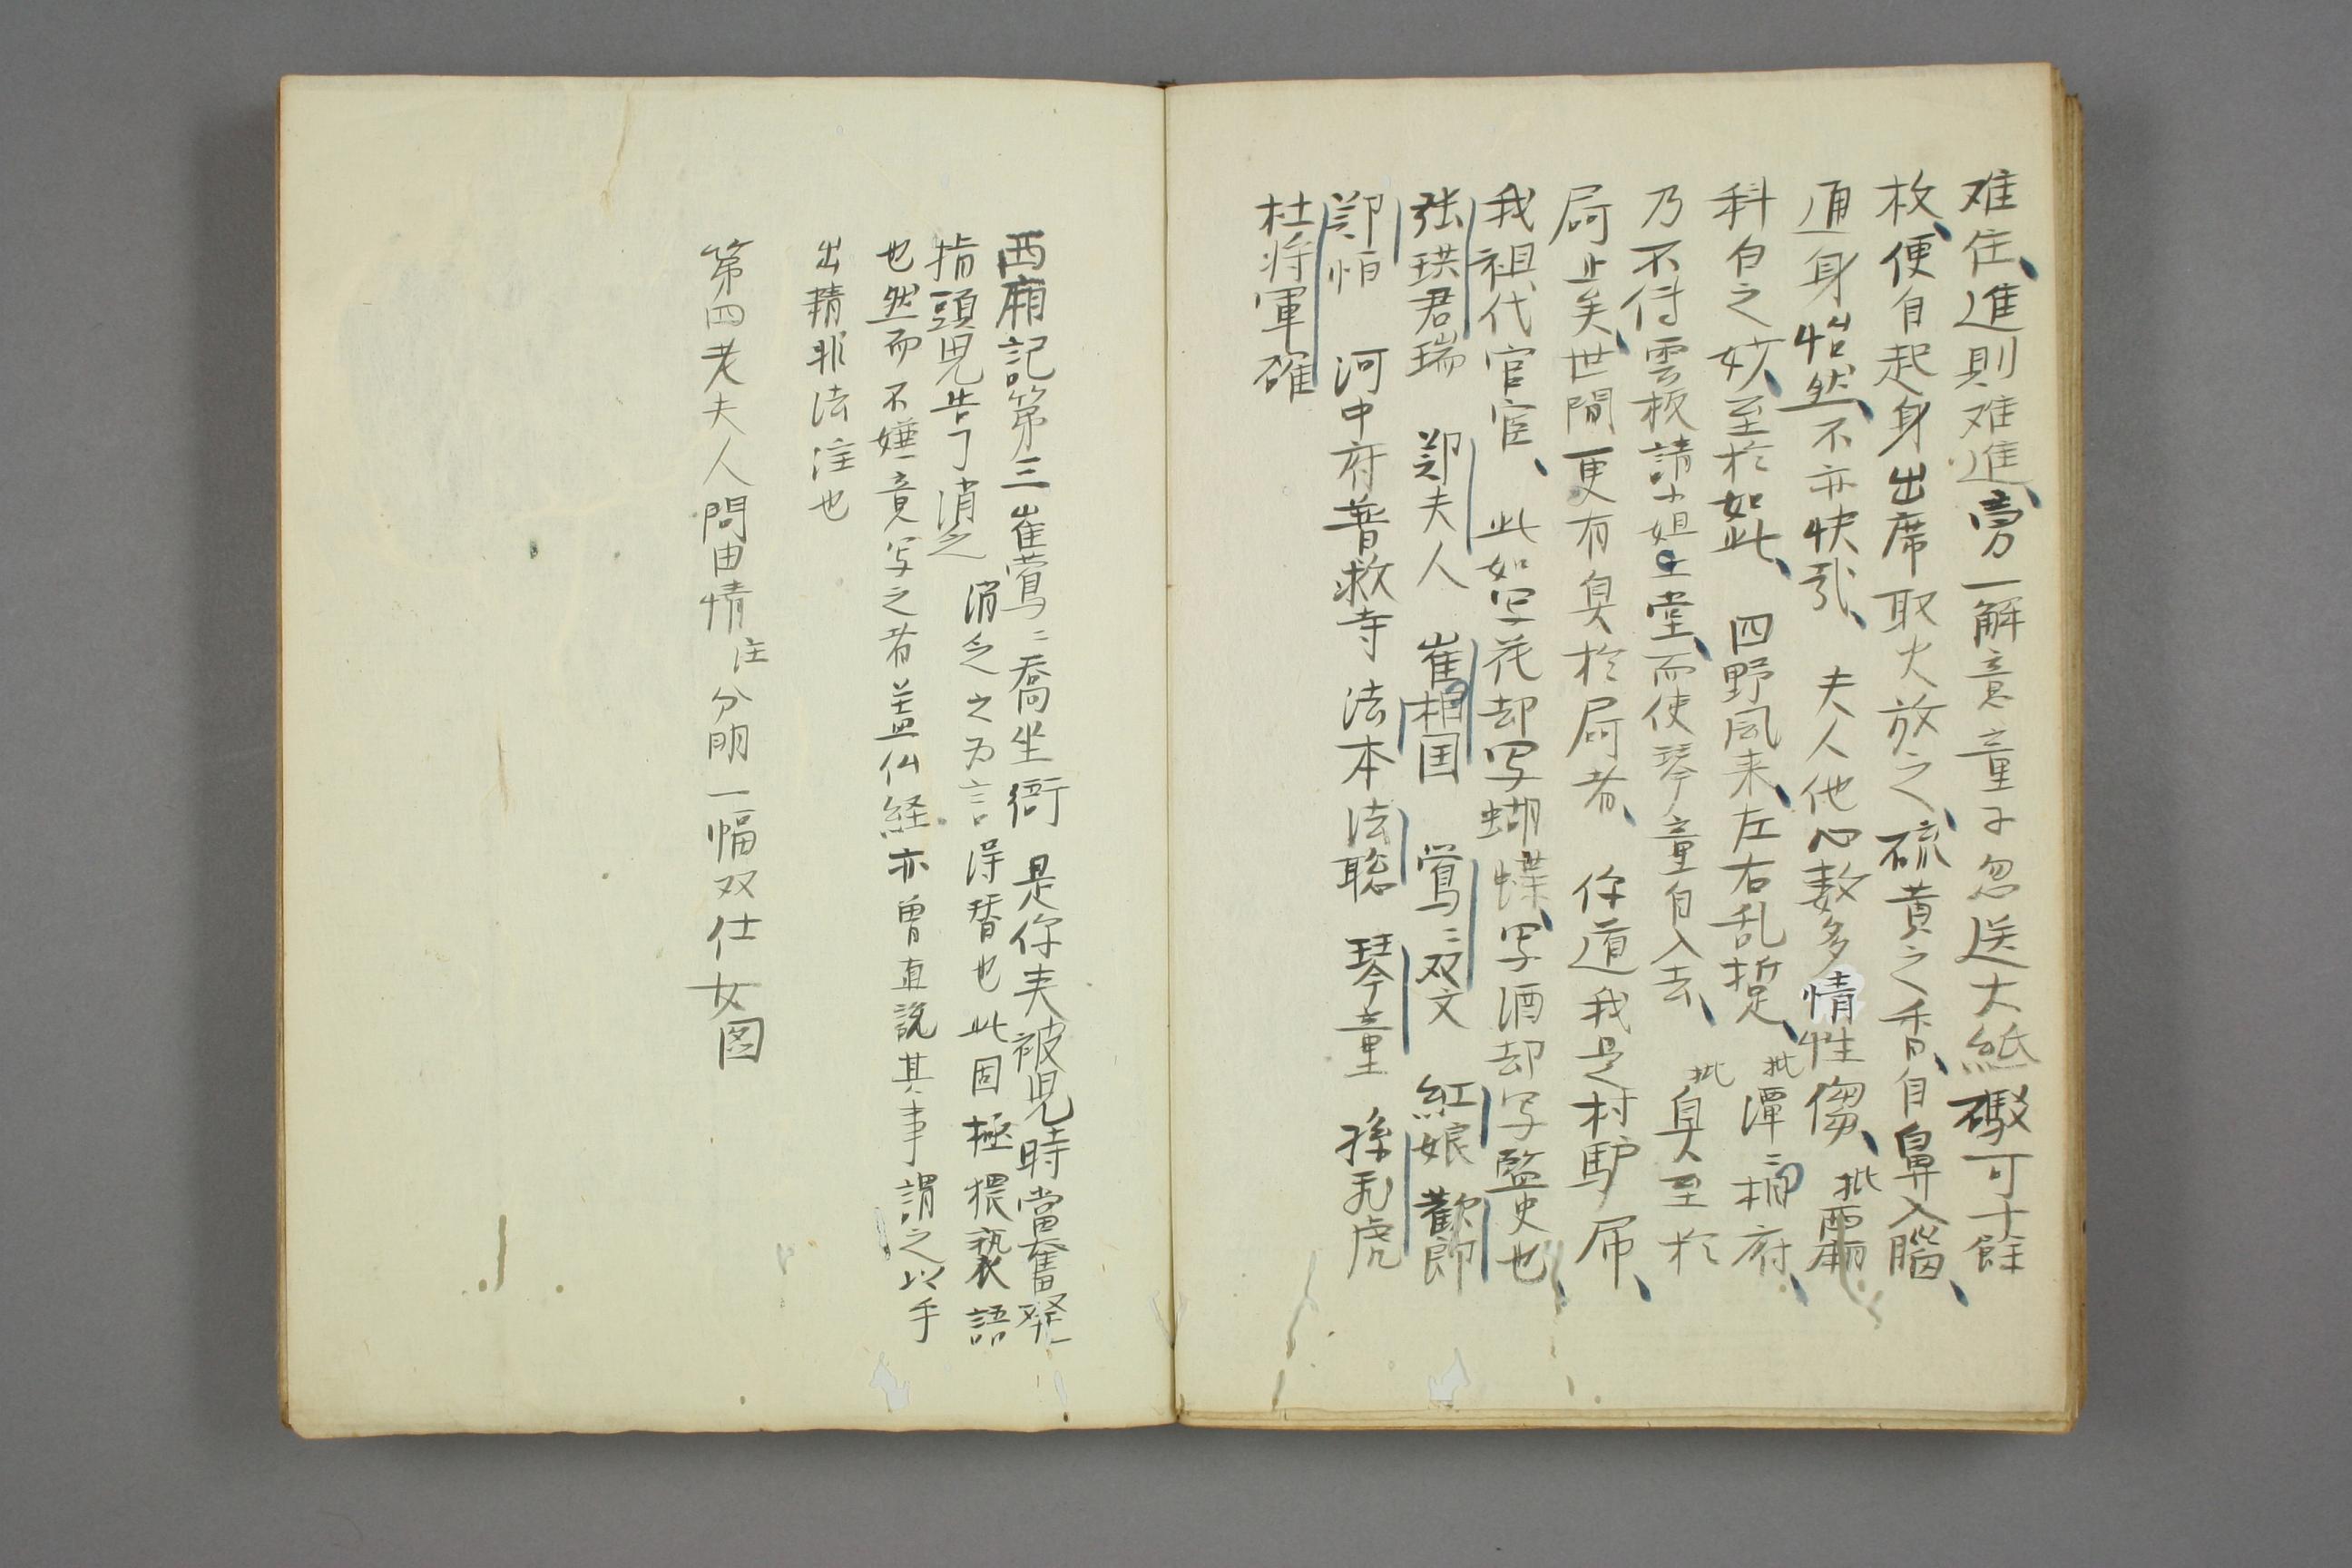 难住、進則难進、旁一解意童子忽送大紙礟可十餘
枚、便自起身出席取火放之、硫黄之香、自鼻入腦、
通身怡然、不亦快哉、 夫人他心数多情性㑳、批西廂
科白之妙、至於如此、 四野風来、左右乱踅、批潭〻相府、
乃不付雲板請小姐上堂、而使琴童自入去、批臭至於
屙止矣、世間更有臭於屙者、 你道我是村馿屌、
我祖代官宦、 此如写花却写蝴蝶、写酒却写監史也、
張珙君瑞 鄭夫人 崔相国 鶯〻双文 紅娘 歡郎
鄭恒 河中府普救寺 法本 法聡 琴童 孫飛虎
杜将軍確
西廂記第三崔鶯〻喬坐衙 是你夫被児時當奮發
指頭児告了消乏 消乏之为言淂替也此固極猥褻語
也然而不嫌竟写之者盖仏経亦曽直説其事謂之以手
出精非法注也
第四老夫人問由情 注 分明一幅双仕女图